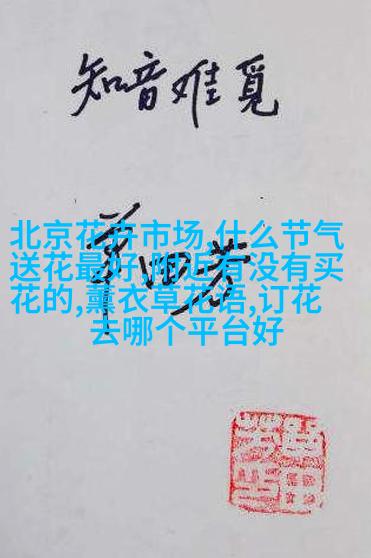 知音难觅
北京花卉市场,什么节气
送花最好,附近有没有买
花的,薰衣草花语,订花
去哪个平台好